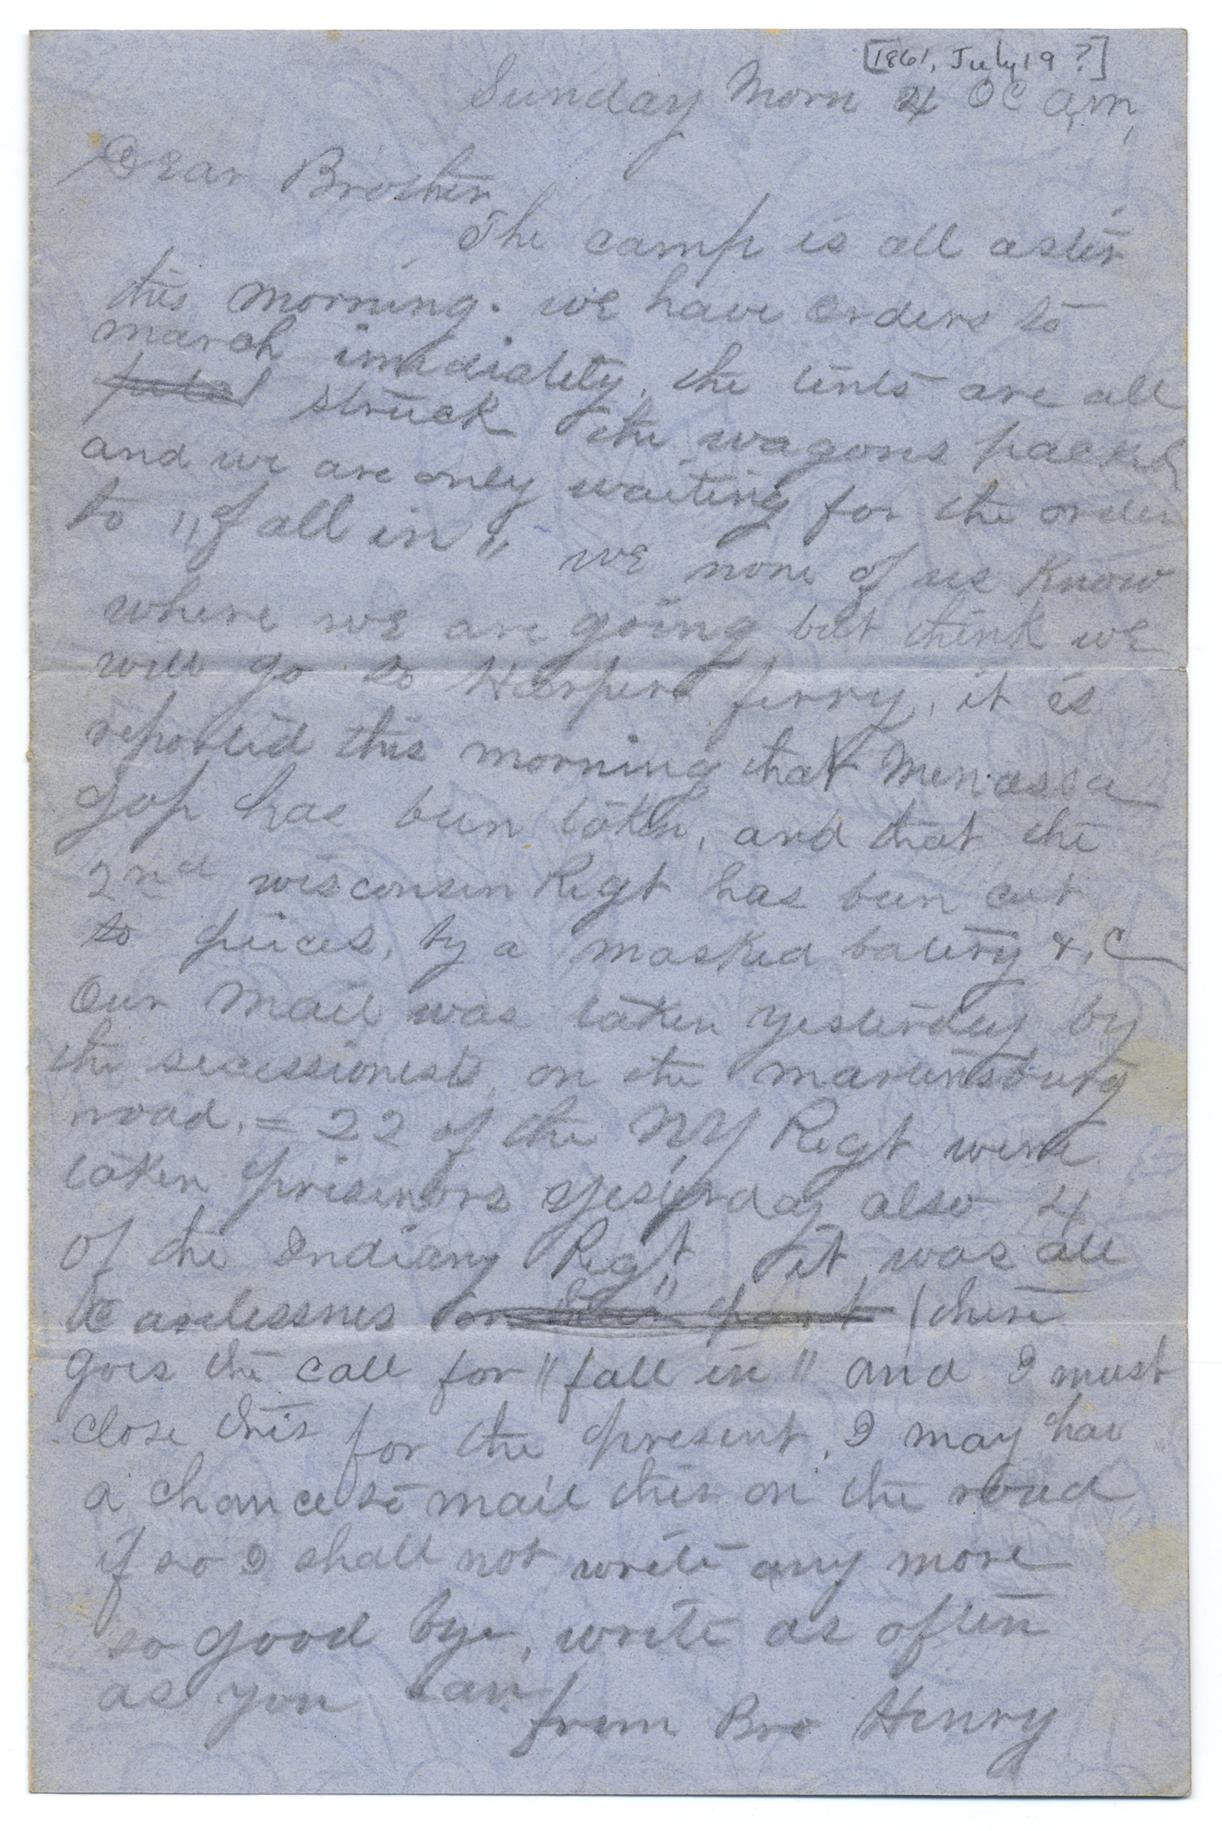 [1861, July 19 ?]
Sunday Morn 4 OC a,m,
Dear Brother
The camp is all astir
this morning. we have orders to
march immdiatety, the tents are all
struck the wagons packed
and we are only waiting for the order
to "fall in" we none of us know
where we are going but think we
will go to Harpers ferry, it is
reported this morning that Menassa
Gap has been taken, and that the
2nd wisconsin Regt has been cut
to peices, by a masked batery &,C
Our Mail was taken yesterday by
the secessionests, on the martinsburg
road, = 22 of the NY Regt were
taken prisinors yesterday also 4
of the Indiany Regt it was all
carlessnes on their part (there
goes the call for "fall in" and I must
close this for the present, I may hav
a chance to mail this on the road
if so I shall not write any more
so good bye, write as often
as you can,
from Bro Henry